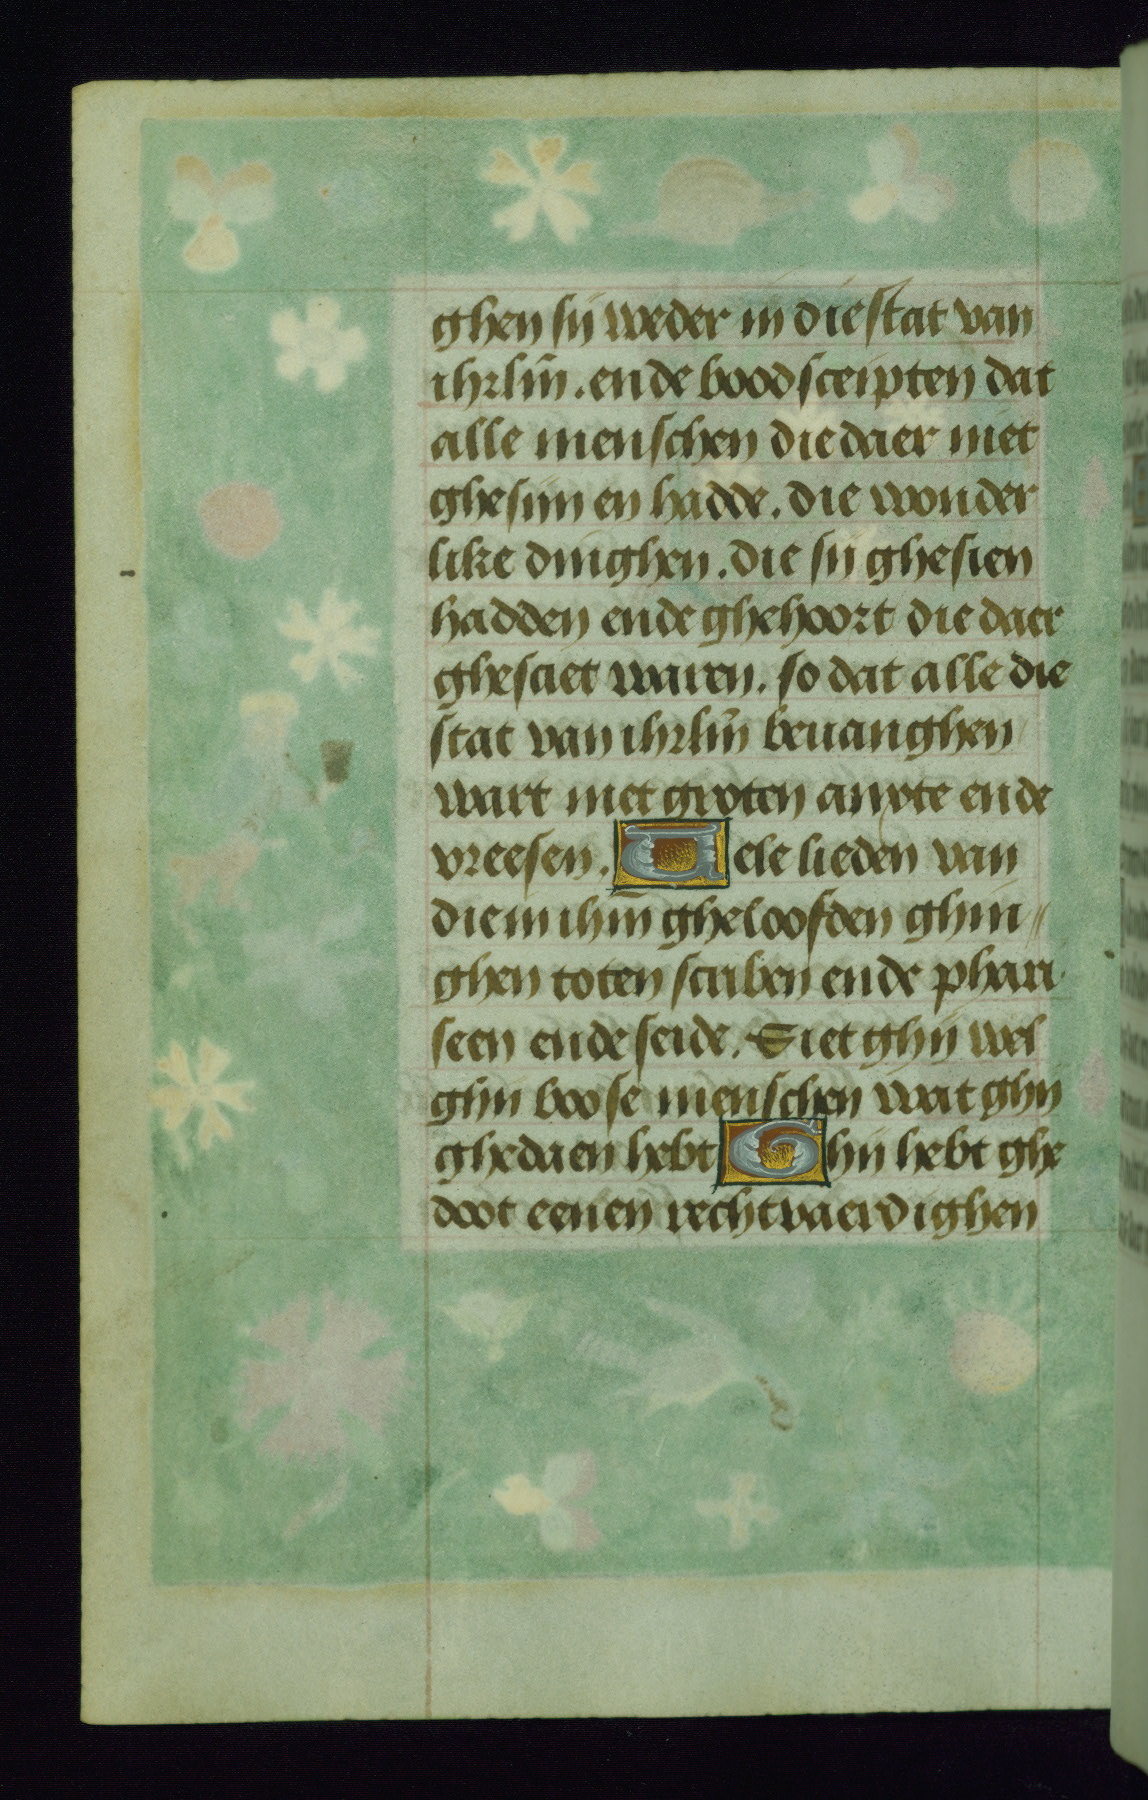 ghen sij weder in die stat van
ihrlm̄. ende boodsceipten dat
alle menschen die daer niet
ghesijn en hadde. die wonder
like dinghen. die sij ghesien
hadden ende ghehoort die daer
ghesciet waren. so dat alle die
stat van ihrlm̄ beuanghen
wart met groten anxte ende
vreesen. Uele lieden van
die in ihm̄ gheloofden ghin//
ghen toten scriben ende phari
seen ende seide. Siet ghij wel
ghij boose menschen wat ghij
ghedaen hebt Ghij hebt ghe
doot eenen rechtvaerdighen